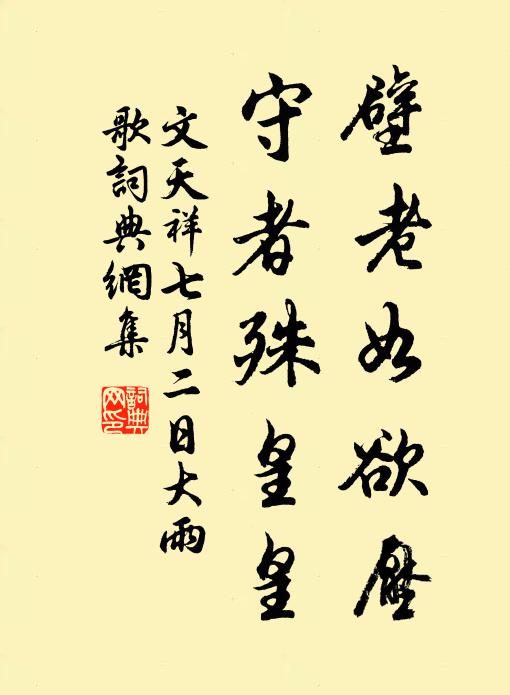 壁老如欲壓
守者殊皇皇
文天祥七月二日大雨
歌詞典網集
詞典
网印